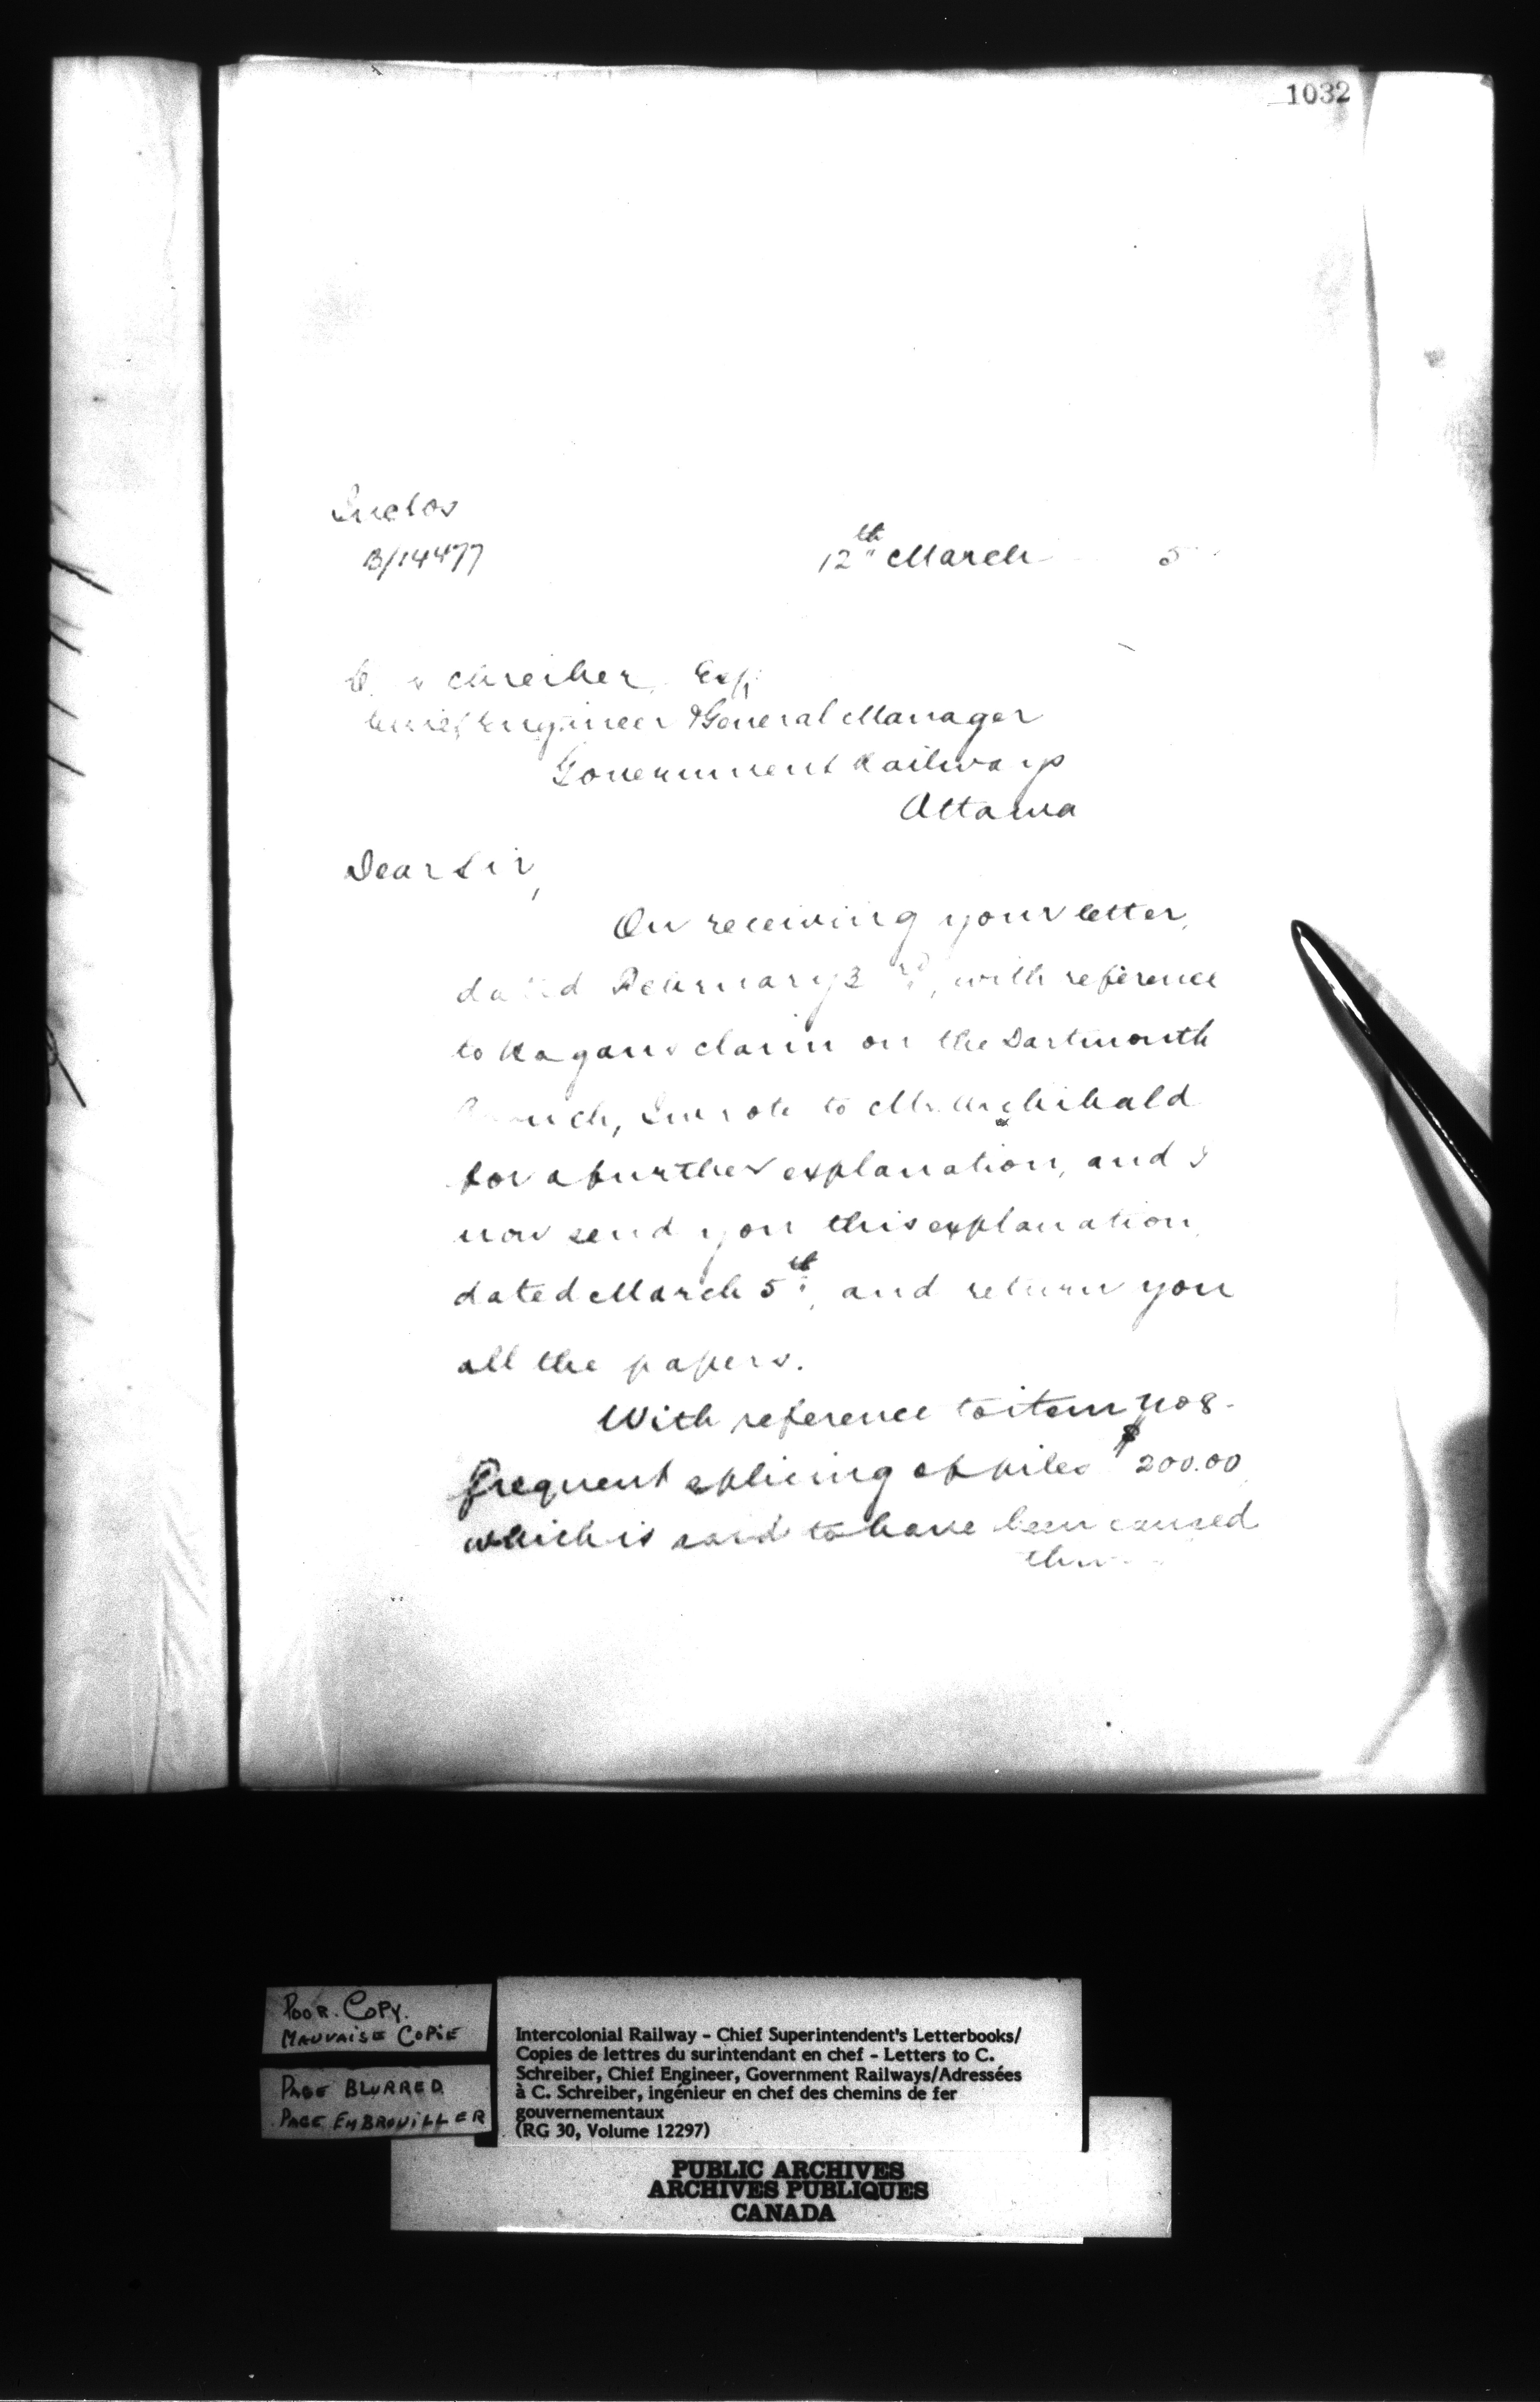 1032
Inclos
B/14477
12th March 5
C. Schreiber, Esq
Chief Engineer & General Manager
Government Railways
Ottawa
Dear Sir,
On receiving your letter,
dated February 3rd, with reference
to claim on the Dartmouth
Branch, I wrote to Mr. Archibald
for a further explanation, and I
now send you this explanation,
dated March 5th, and return you
all the papers.
With reference to item No 8 -
frequent splicing of piles $200.00
which is said to have been caused
POOR. COPY.
MAUVAISE COPIE
PAGE BLURRED
PAGE EMBROUILLER
Intercolonial Railway - Chief Superintendent's Letterbooks/
Copies de lettres du surintendant en chef - Letters to C.
Schreiber, Chief Engineer, Government Railways/Adressées
à C. Schreiber, ingénieur en chef des chemins de fer
gouvernementaux
(RG 30, Volume 12297)
PUBLIC ARCHIVES
ARCHIVES PUBLIQUES
CANADA